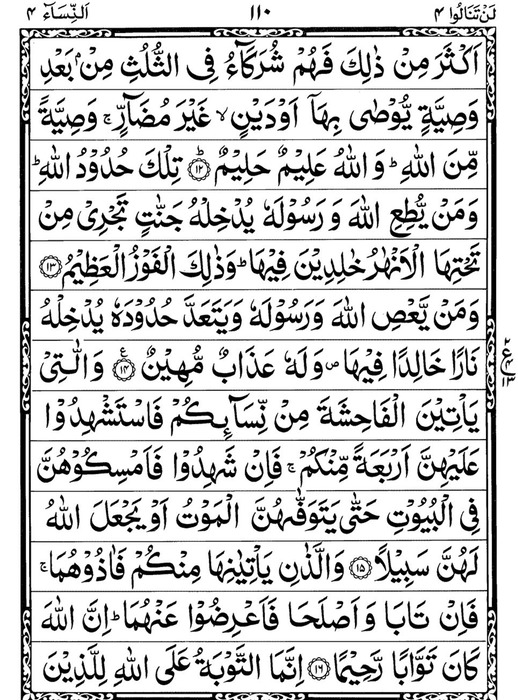 لَنْ تَنَالُوا ٤ ١١٠ اَلنِّسَآء ٤
اَكْثَرَ مِنْ ذٰلِكَ فَهُمْ شُرَكَآءُ فِى الثُّلُثِ مِنْۢ بَعْدِ
وَصِيَّةٍ يُّوْصٰى بِهَآ اَوْدَيْنٍ ۙ غَيْرَ مُضَآرٍّ ۚ وَصِيَّةً
مِّنَ اللهِ ؕ وَ اللهُ عَلِيْمٌ حَلِيْمٌ ؕ ﴿١٢﴾ تِلْكَ حُدُوْدُ اللهِ ؕ
وَمَنْ يُّطِعِ اللهَ وَ رَسُوْلَهٗ يُدْخِلْهُ جَنّٰتٍ تَجْرِىْ مِنْ
تَحْتِهَا الْاَنْهٰرُ خٰلِدِيْنَ فِيْهَا ؕ وَذٰلِكَ الْفَوْزُ الْعَظِيْمُ ﴿١٣﴾
وَمَنْ يَّعْصِ اللهَ وَرَسُوْلَهٗ وَيَتَعَدَّ حُدُوْدَهٗ يُدْخِلْهُ
نَارًا خَالِدًا فِيْهَا ۪ وَلَهٗ عَذَابٌ مُّهِيْنٌ ع ﴿١٤﴾ وَالّٰتِىْ
يَاْتِيْنَ الْفَاحِشَةَ مِنْ نِّسَآىِٕكُمْ فَاسْتَشْهِدُوْا
عَلَيْهِنَّ اَرْبَعَةً مِّنْكُمْ ۚ فَاِنْ شَهِدُوْا فَاَمْسِكُوْهُنَّ
فِى الْبُيُوْتِ حَتّٰى يَتَوَفّٰهُنَّ الْمَوْتُ اَوْ يَجْعَلَ اللهُ
لَهُنَّ سَبِيْلًا ﴿١٥﴾ وَالَّذٰنِ يَاْتِيٰنِهَا مِنْكُمْ فَاٰذُوْهُمَا ۚ
فَاِنْ تَابَا وَ اَصْلَحَا فَاَعْرِضُوْا عَنْهُمَا ؕ اِنَّ اللهَ
كَانَ تَوَّابًا رَّحِيْمًا ﴿١٦﴾ اِنَّمَا التَّوْبَةُ عَلَى اللهِ لِلَّذِيْنَ
٢
ع ٤
١٣